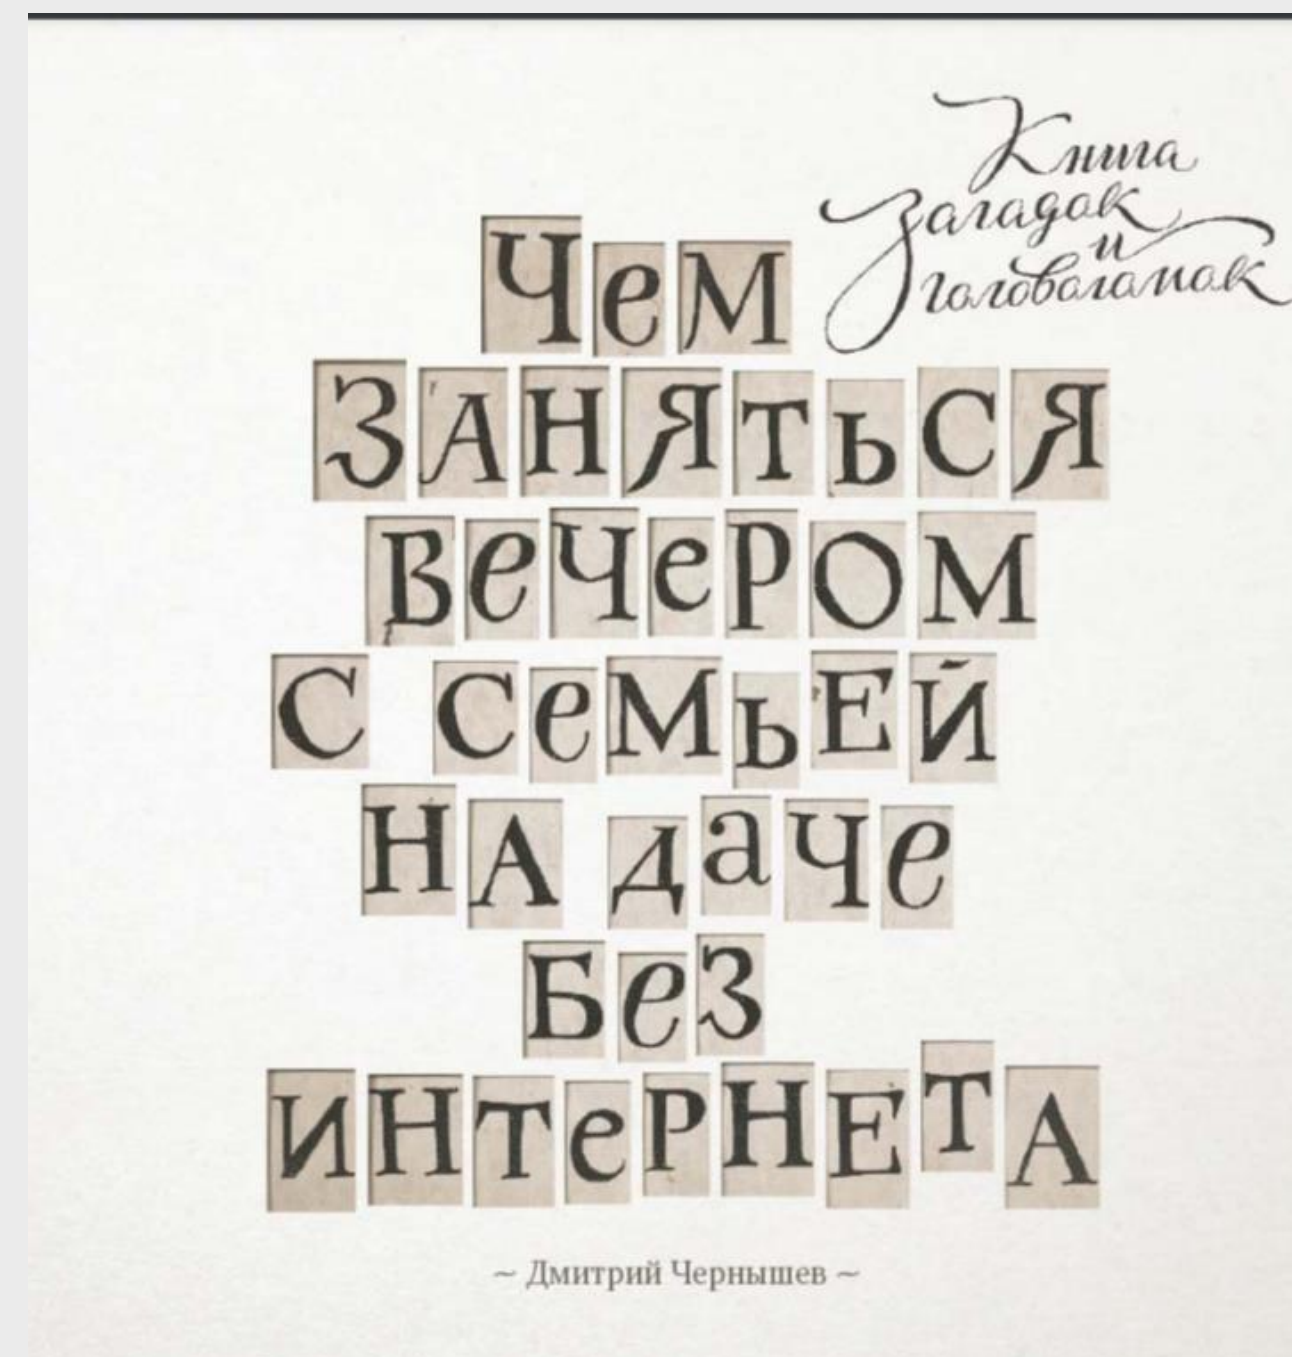 Книга
загадок
и
головоломок
Чем
ЗАНЯТЬСЯ
ВечерОМ
С СемьЕЙ
НА даче
Без
ИНТеРНЕТА
~ Дмитрий Чернышев ~